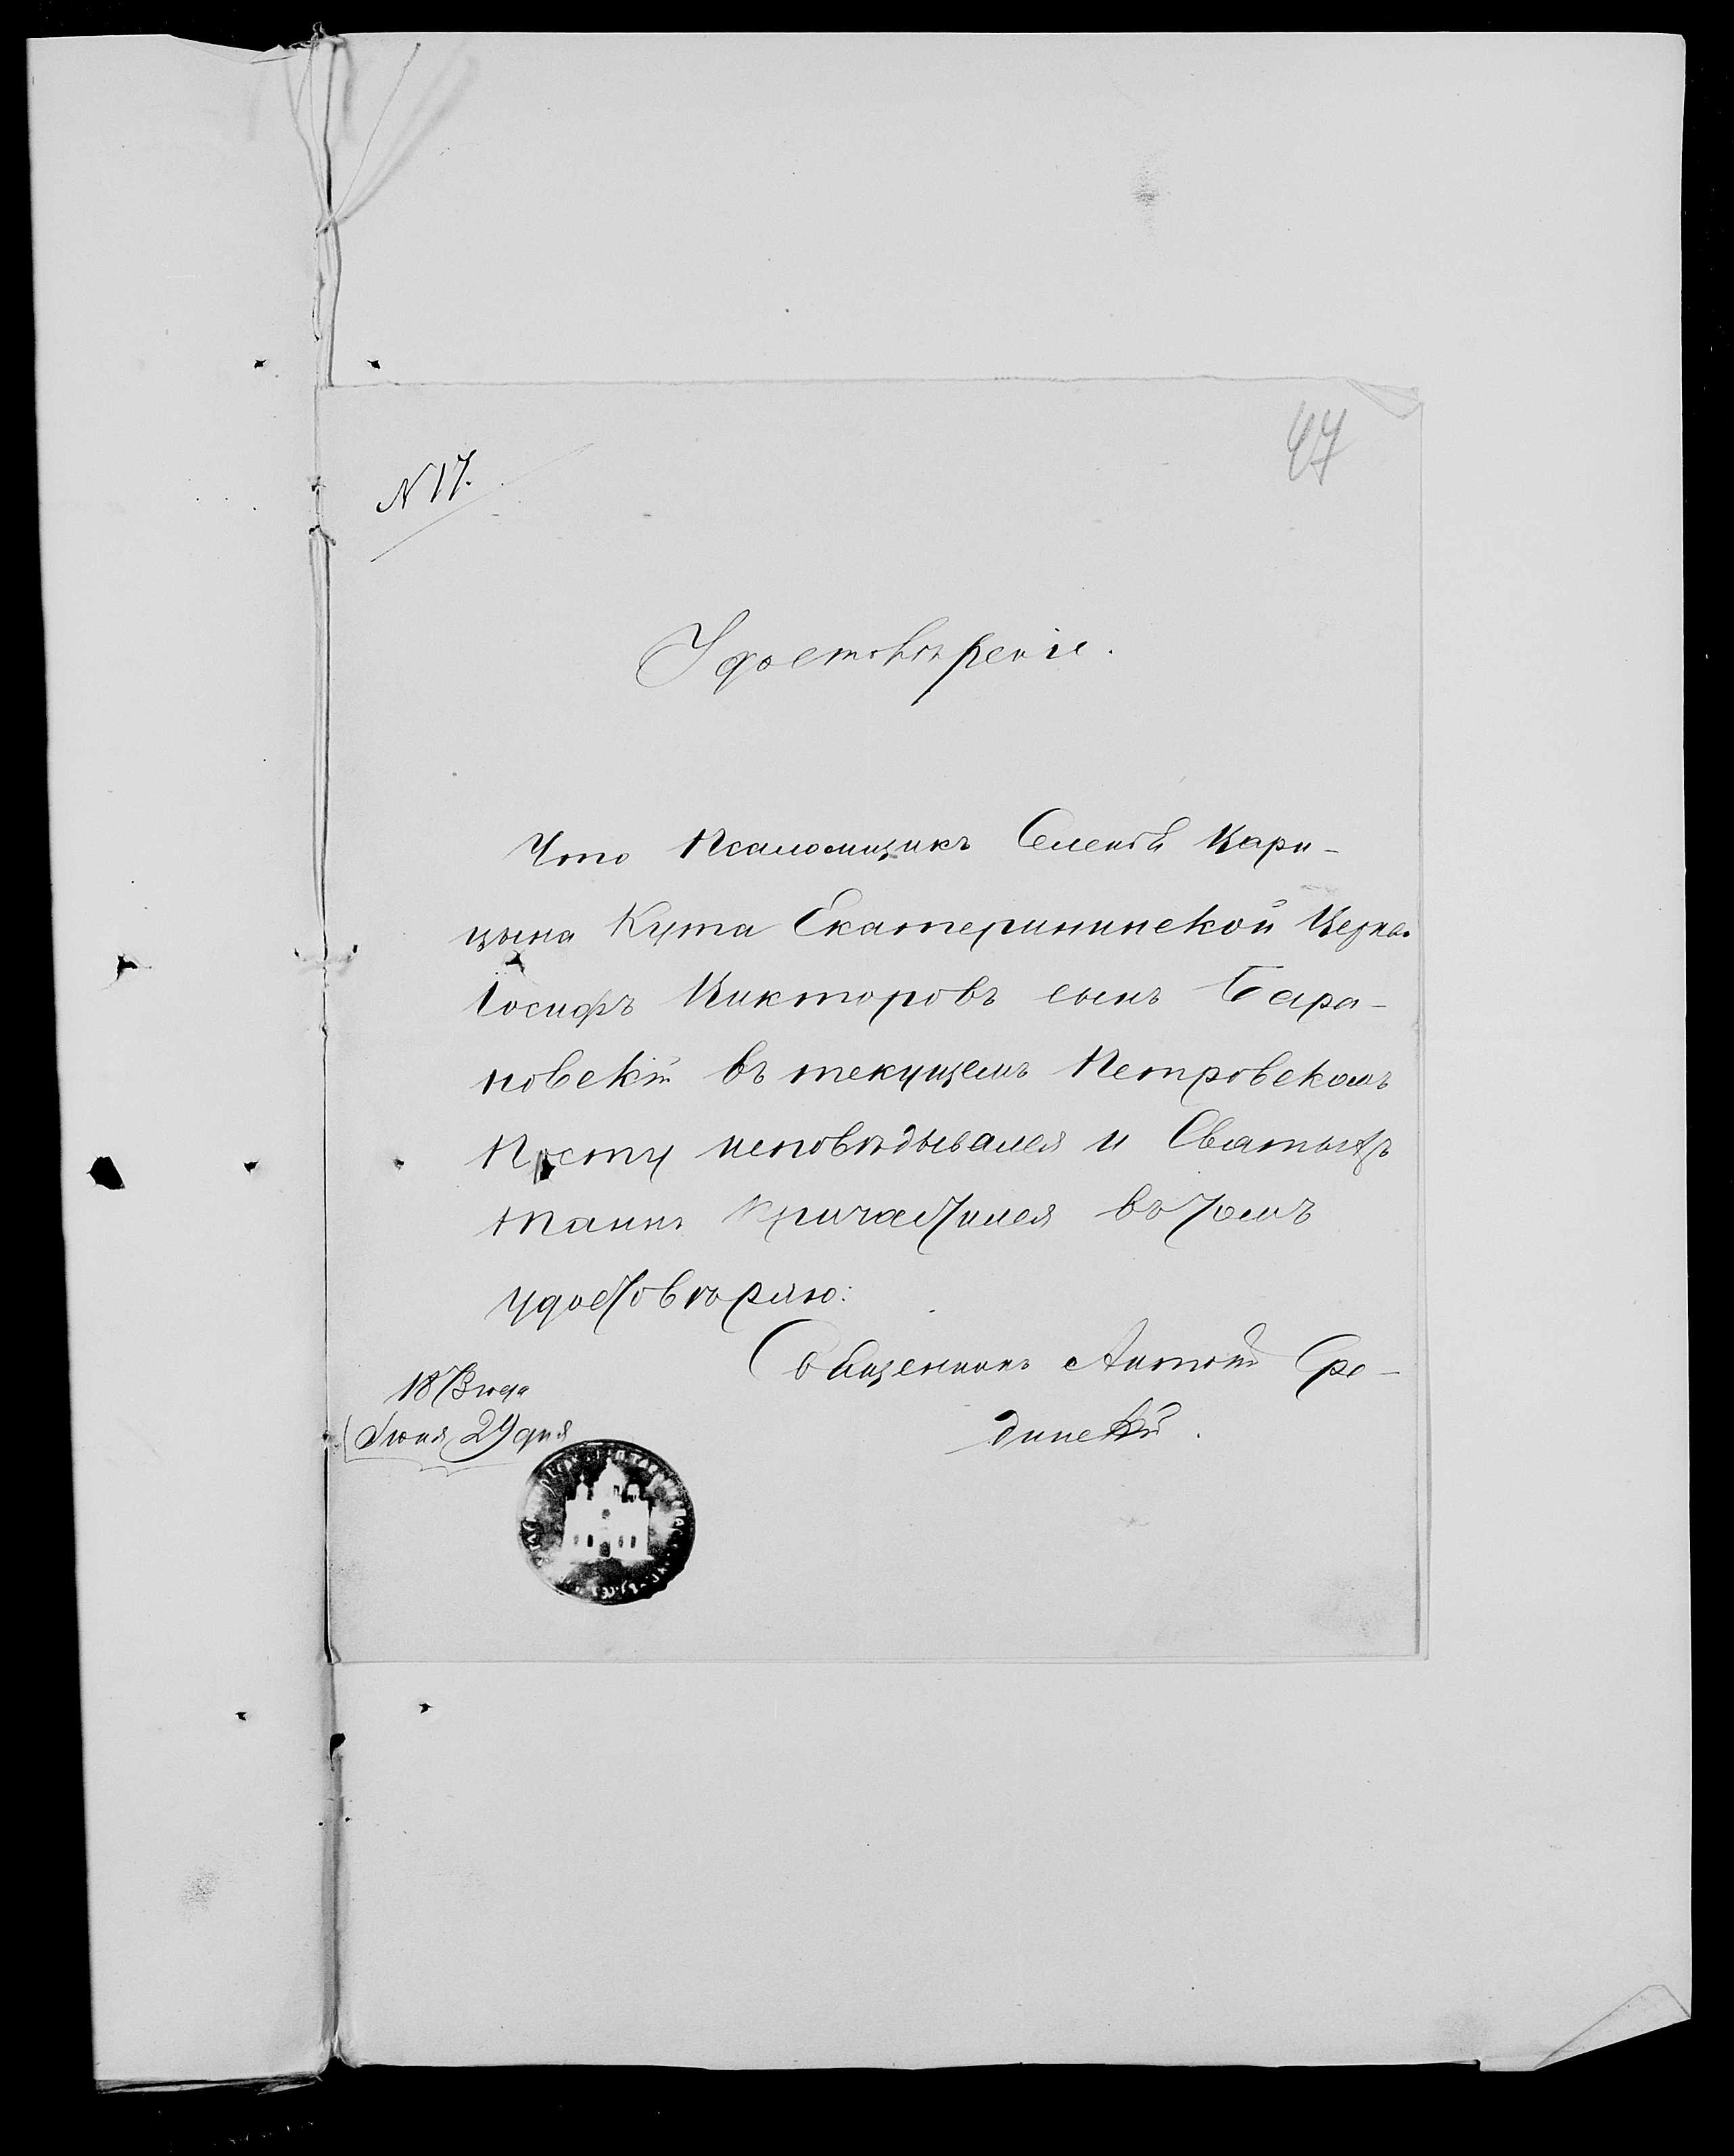 47
N 17.
Удостовѣреніе.
Что Псаломщикъ Селенія Цари-
цына Кута Екатерининской Церкв.
Іосифъ Викторовъ сынъ Бара-
новскій въ текущемъ Петровскомъ
Посту исповѣдывался и Святыхъ
таинъ причастился въ томъ
удостовѣряю:
Священникъ Антоній Сре-
динскій.
1873 года
Іюня 29 дня